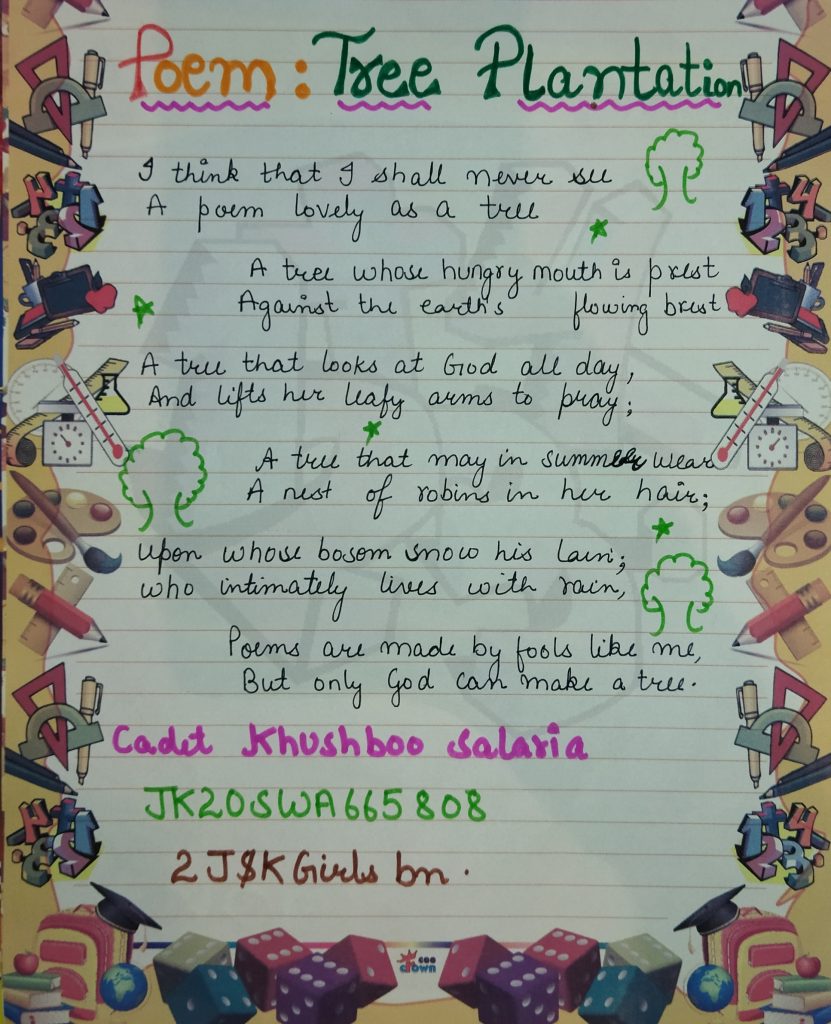 Poem: Tree Plantation
I think that I shall never see
A poem lovely as a tree
A tree whose hungry mouth is prest
Against the earth's flowing brest
A tree that looks at God all day,
And lifts her leafy arms to pray;
A tree that may in summer wear
A nest of robins in her hair;
upon whose bosom snow his lain;
who intimately lives with rain,
Poems are made by fools like me,
But only God can make a tree.
Cadet Khushboo Salaria
JK20SWA665808
2J$K Girls bn.
coo
crown